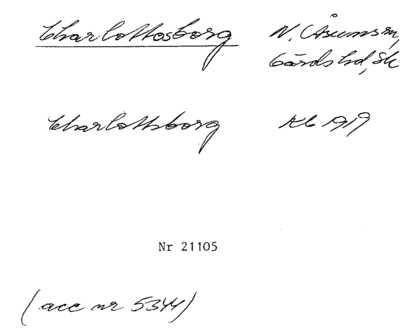 Charlottosborg N. Åsums sn,
Gärds hd, Sk
Charlottsborg Kb 1919
Nr 21105
(acc nr 5344)